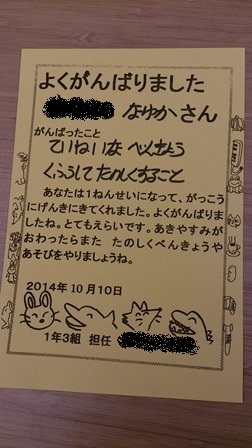 よくがんばりました
なゆかさん
がんばったこと
ていねいな べんきょう
くふうしてたのしくすること
あなたは1ねんせいになって、がっこう
にげんきにきてくれました。よくがんばりま
したね。とてもえらいです。あきやすみが
おわったらまた たのしくべんきょうや
あそびをやりましょうね。
2014年10月10日
1年3組 担任